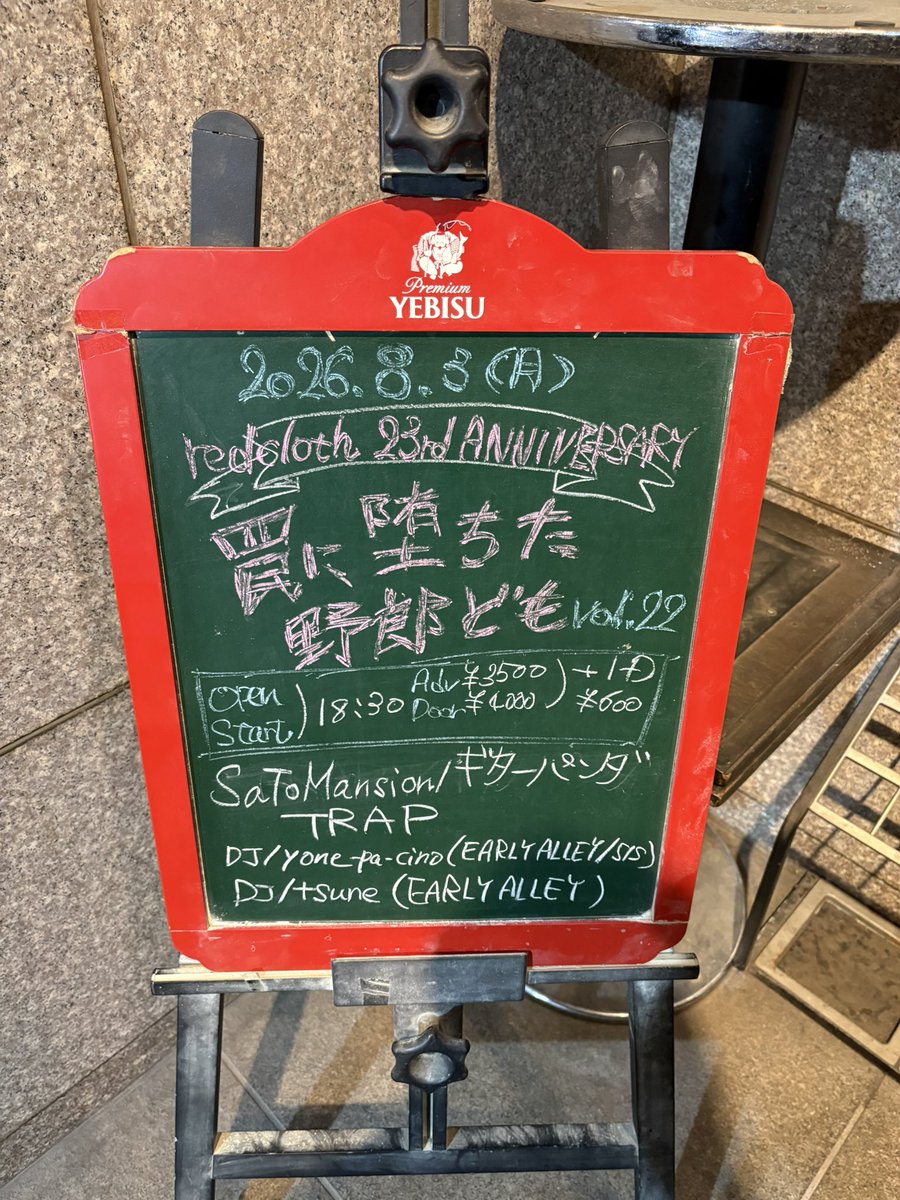 Premium
YEBISU
2026.8.3(月)
redcloth 23rd ANNIVERSARY
罠に堕ちた
野郎ども vol.22
Open
Start
)18:30
Adv ¥3500
Door ¥4000
)+1D
¥600
SaToMansion/ギターパンダ
TRAP
DJ/yone-pa-cino(EARLY ALLEY/SIS)
DJ/tsune (EARLY ALLEY)